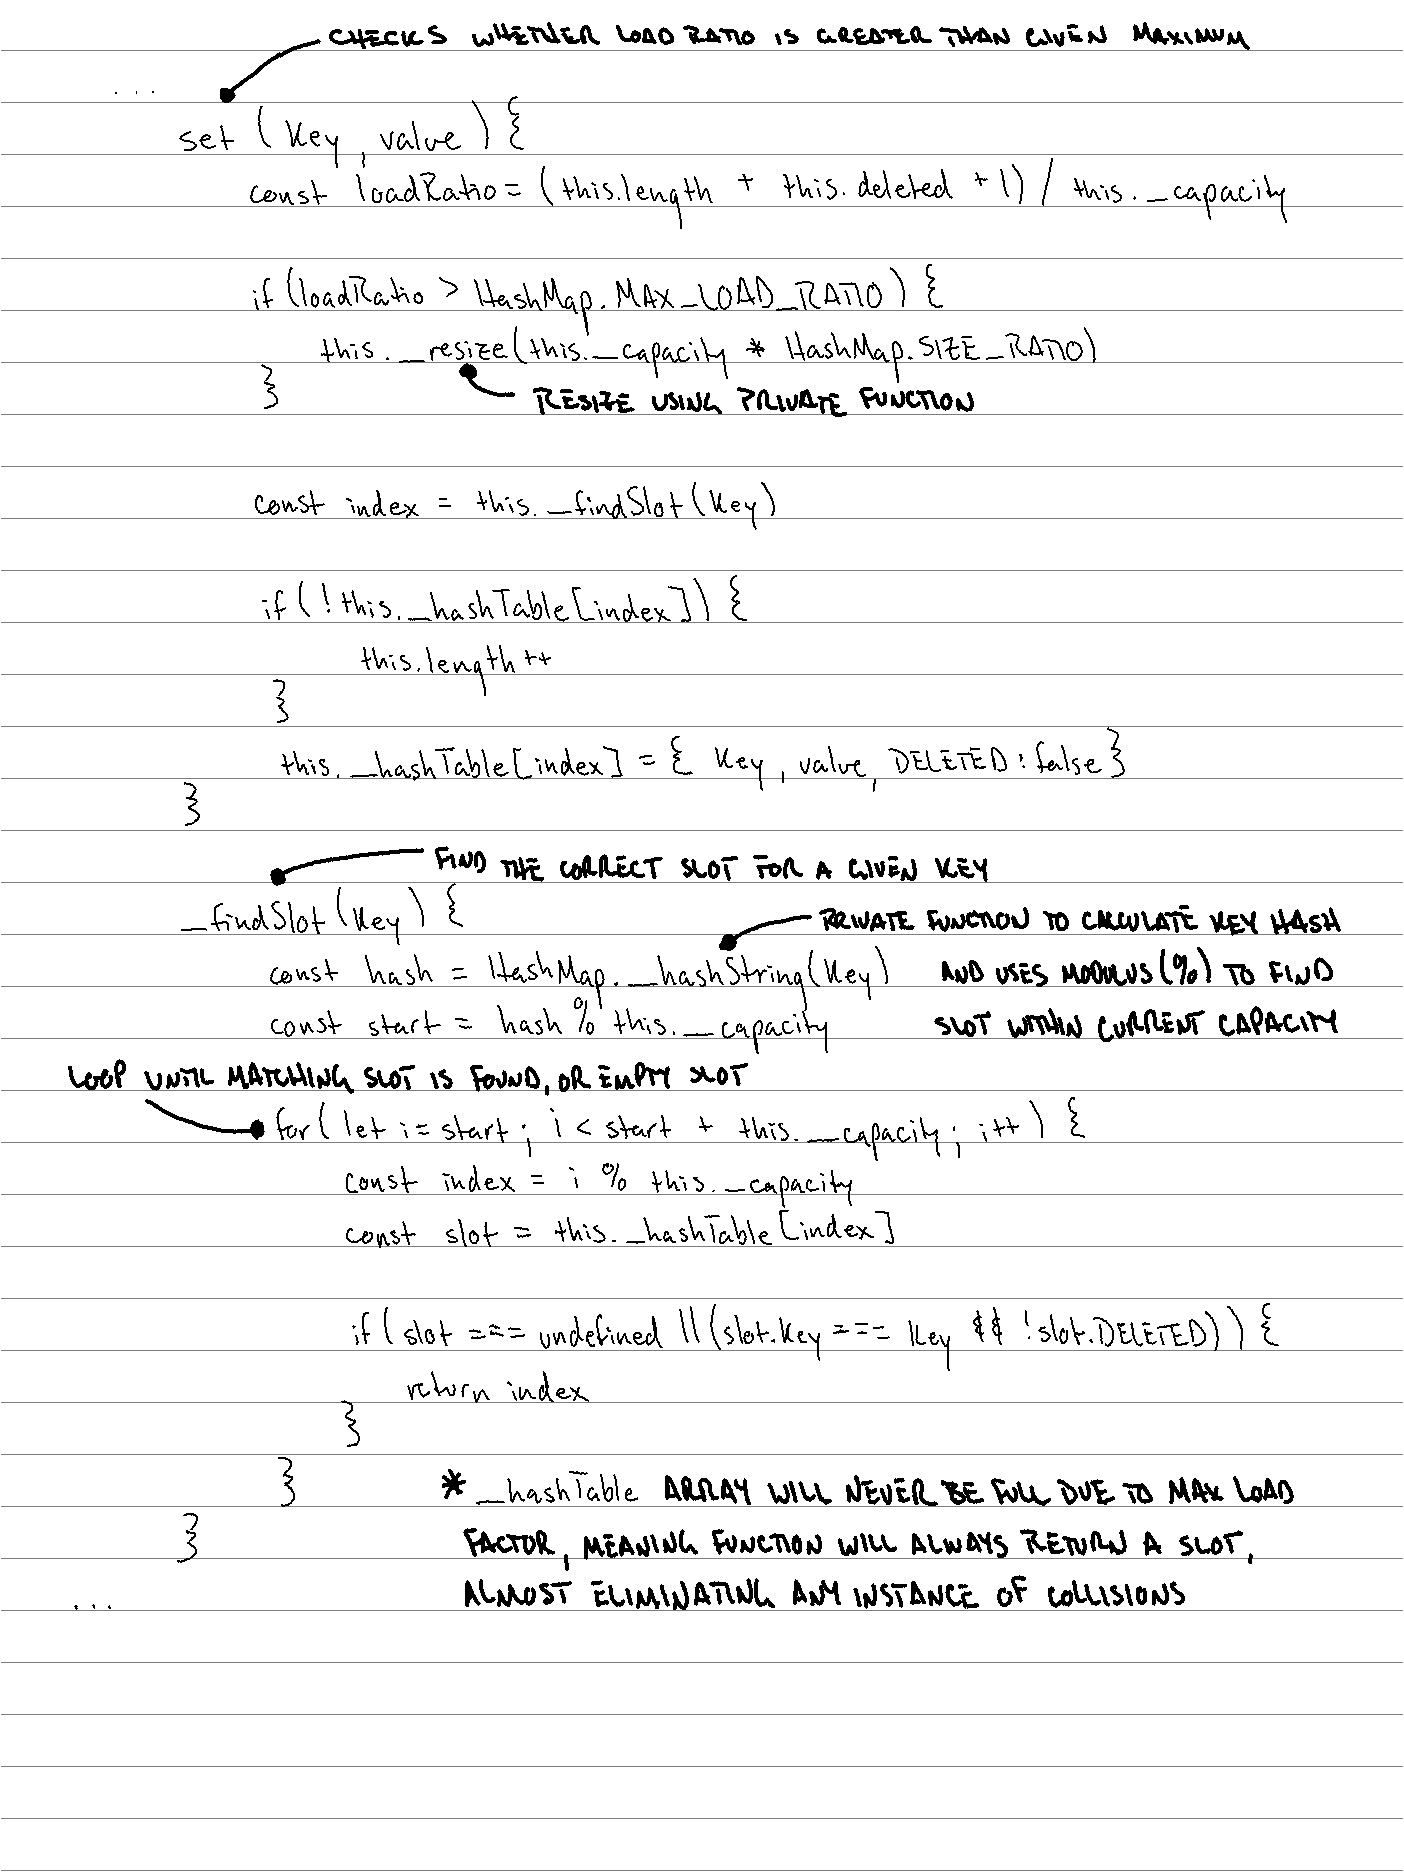 CHECKS WHETHER LOAD RATIO IS GREATER THAN GIVEN MAXIMUM
...
set (key, value) {
const loadRatio = (this.length + this.deleted + 1) / this._capacity
if (loadRatio > HashMap.MAX_LOAD_RATIO) {
this._resize(this._capacity * HashMap.SIZE_RATIO)
}
RESIZE USING PRIVATE FUNCTION
const index = this._findSlot(key)
if (!this._hashTable[index]) {
this.length++
}
this._hashTable[index] = { key, value, DELETED: false}
}
FIND THE CORRECT SLOT FOR A GIVEN KEY
_findSlot(key) {
PRIVATE FUNCTION TO CALCULATE KEY HASH
const hash = HashMap._hashString(key)
AND USES MODULUS (%) TO FIND
const start = hash % this._capacity
SLOT WITHIN CURRENT CAPACITY
LOOP UNTIL MATCHING SLOT IS FOUND, OR EMPTY SLOT
for (let i = start; i < start + this._capacity; i++) {
const index = i % this._capacity
const slot = this._hashTable[index]
if (slot === undefined || (slot.key === key && !slot.DELETED)) {
return index
}
}
* _hashTable ARRAY WILL NEVER BE FULL DUE TO MAX LOAD
}
FACTOR, MEANING FUNCTION WILL ALWAYS RETURN A SLOT,
ALMOST ELIMINATING ANY INSTANCE OF COLLISIONS
...